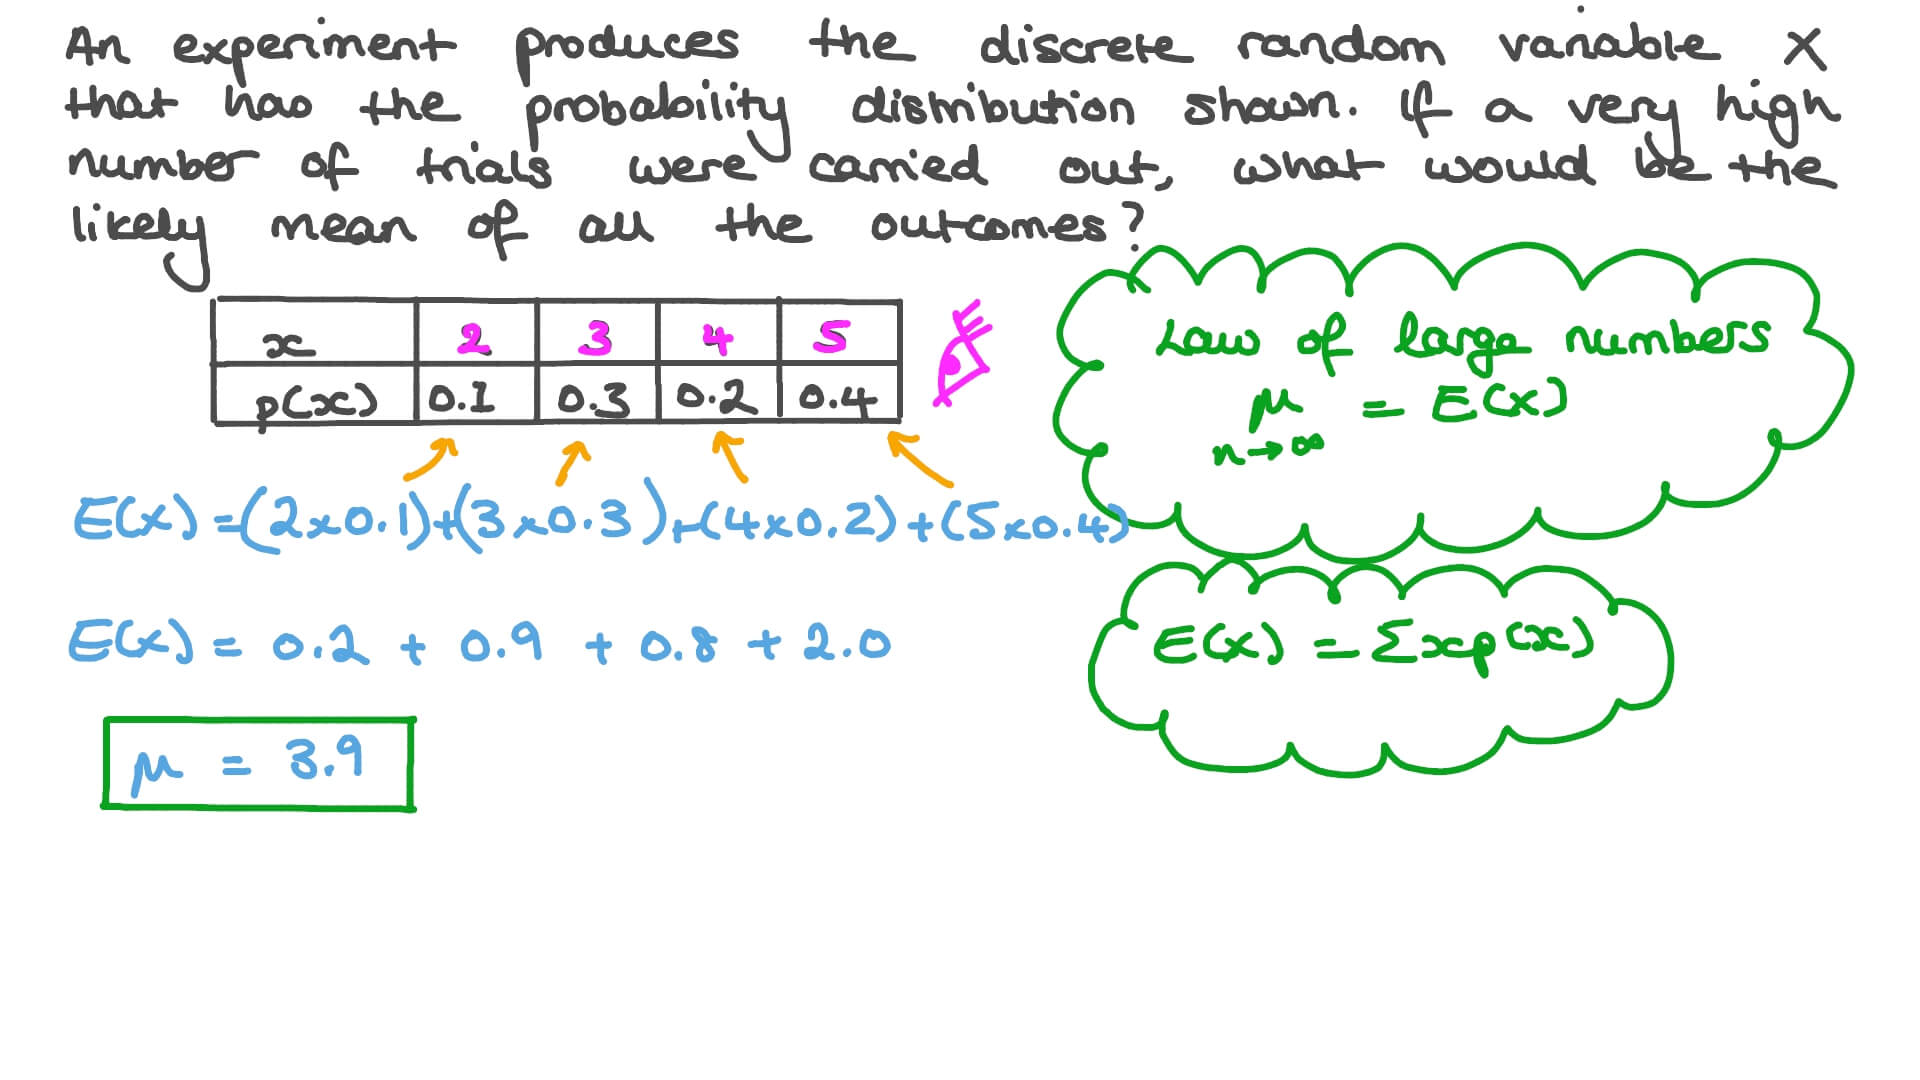 An experiment produces the discrete random variable X
that has the probability distribution shown. If a very high
number of trials were carried out, what would be the
likely mean of all the outcomes?
x 2 3 4 5
p(x) 0.1 0.3 0.2 0.4
Law of large numbers
μ = E(X)
n→∞
E(X) = (2x0.1)+(3x0.3)+(4x0.2)+(5x0.4)
E(X) = 0.2 + 0.9 + 0.8 + 2.0
E(X) = Σxp(x)
μ = 3.9